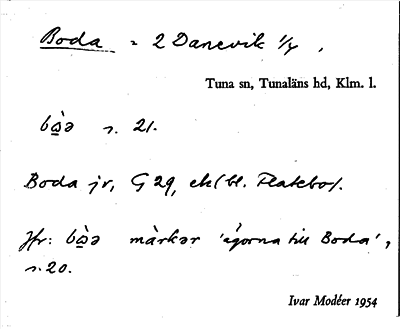 Boda = 2 Danevik 1/4 ,
Tuna sn, Tunaläns hd, Klm. l.
bò̱ə s. 21.
Boda jr, G 29, ek(bl. Flatebo).
Jfr: bò̱ə màrkər 'ägorna till Boda',
s. 20.
Ivar Modéer 1954